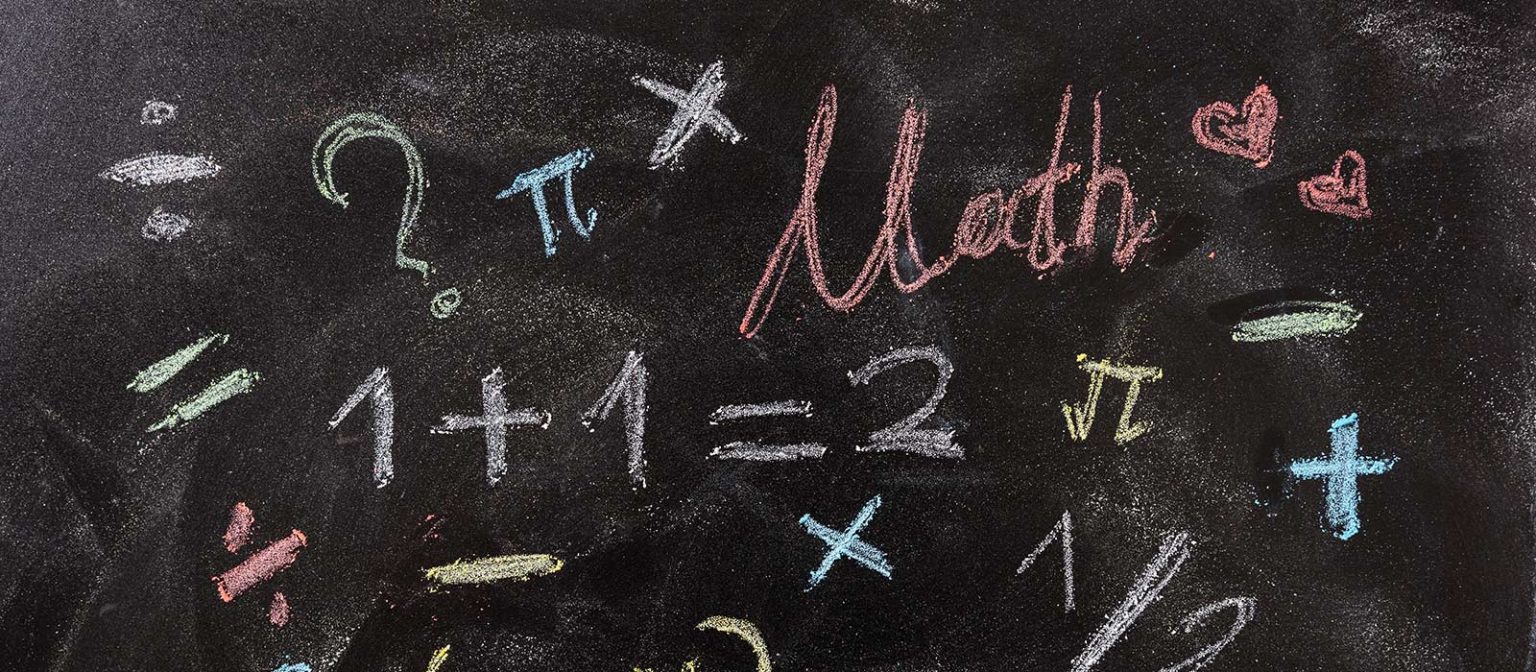 ÷ ? π × Math ♥ ♥
= 1 + 1 = 2 π −
÷ − × 1/2 +